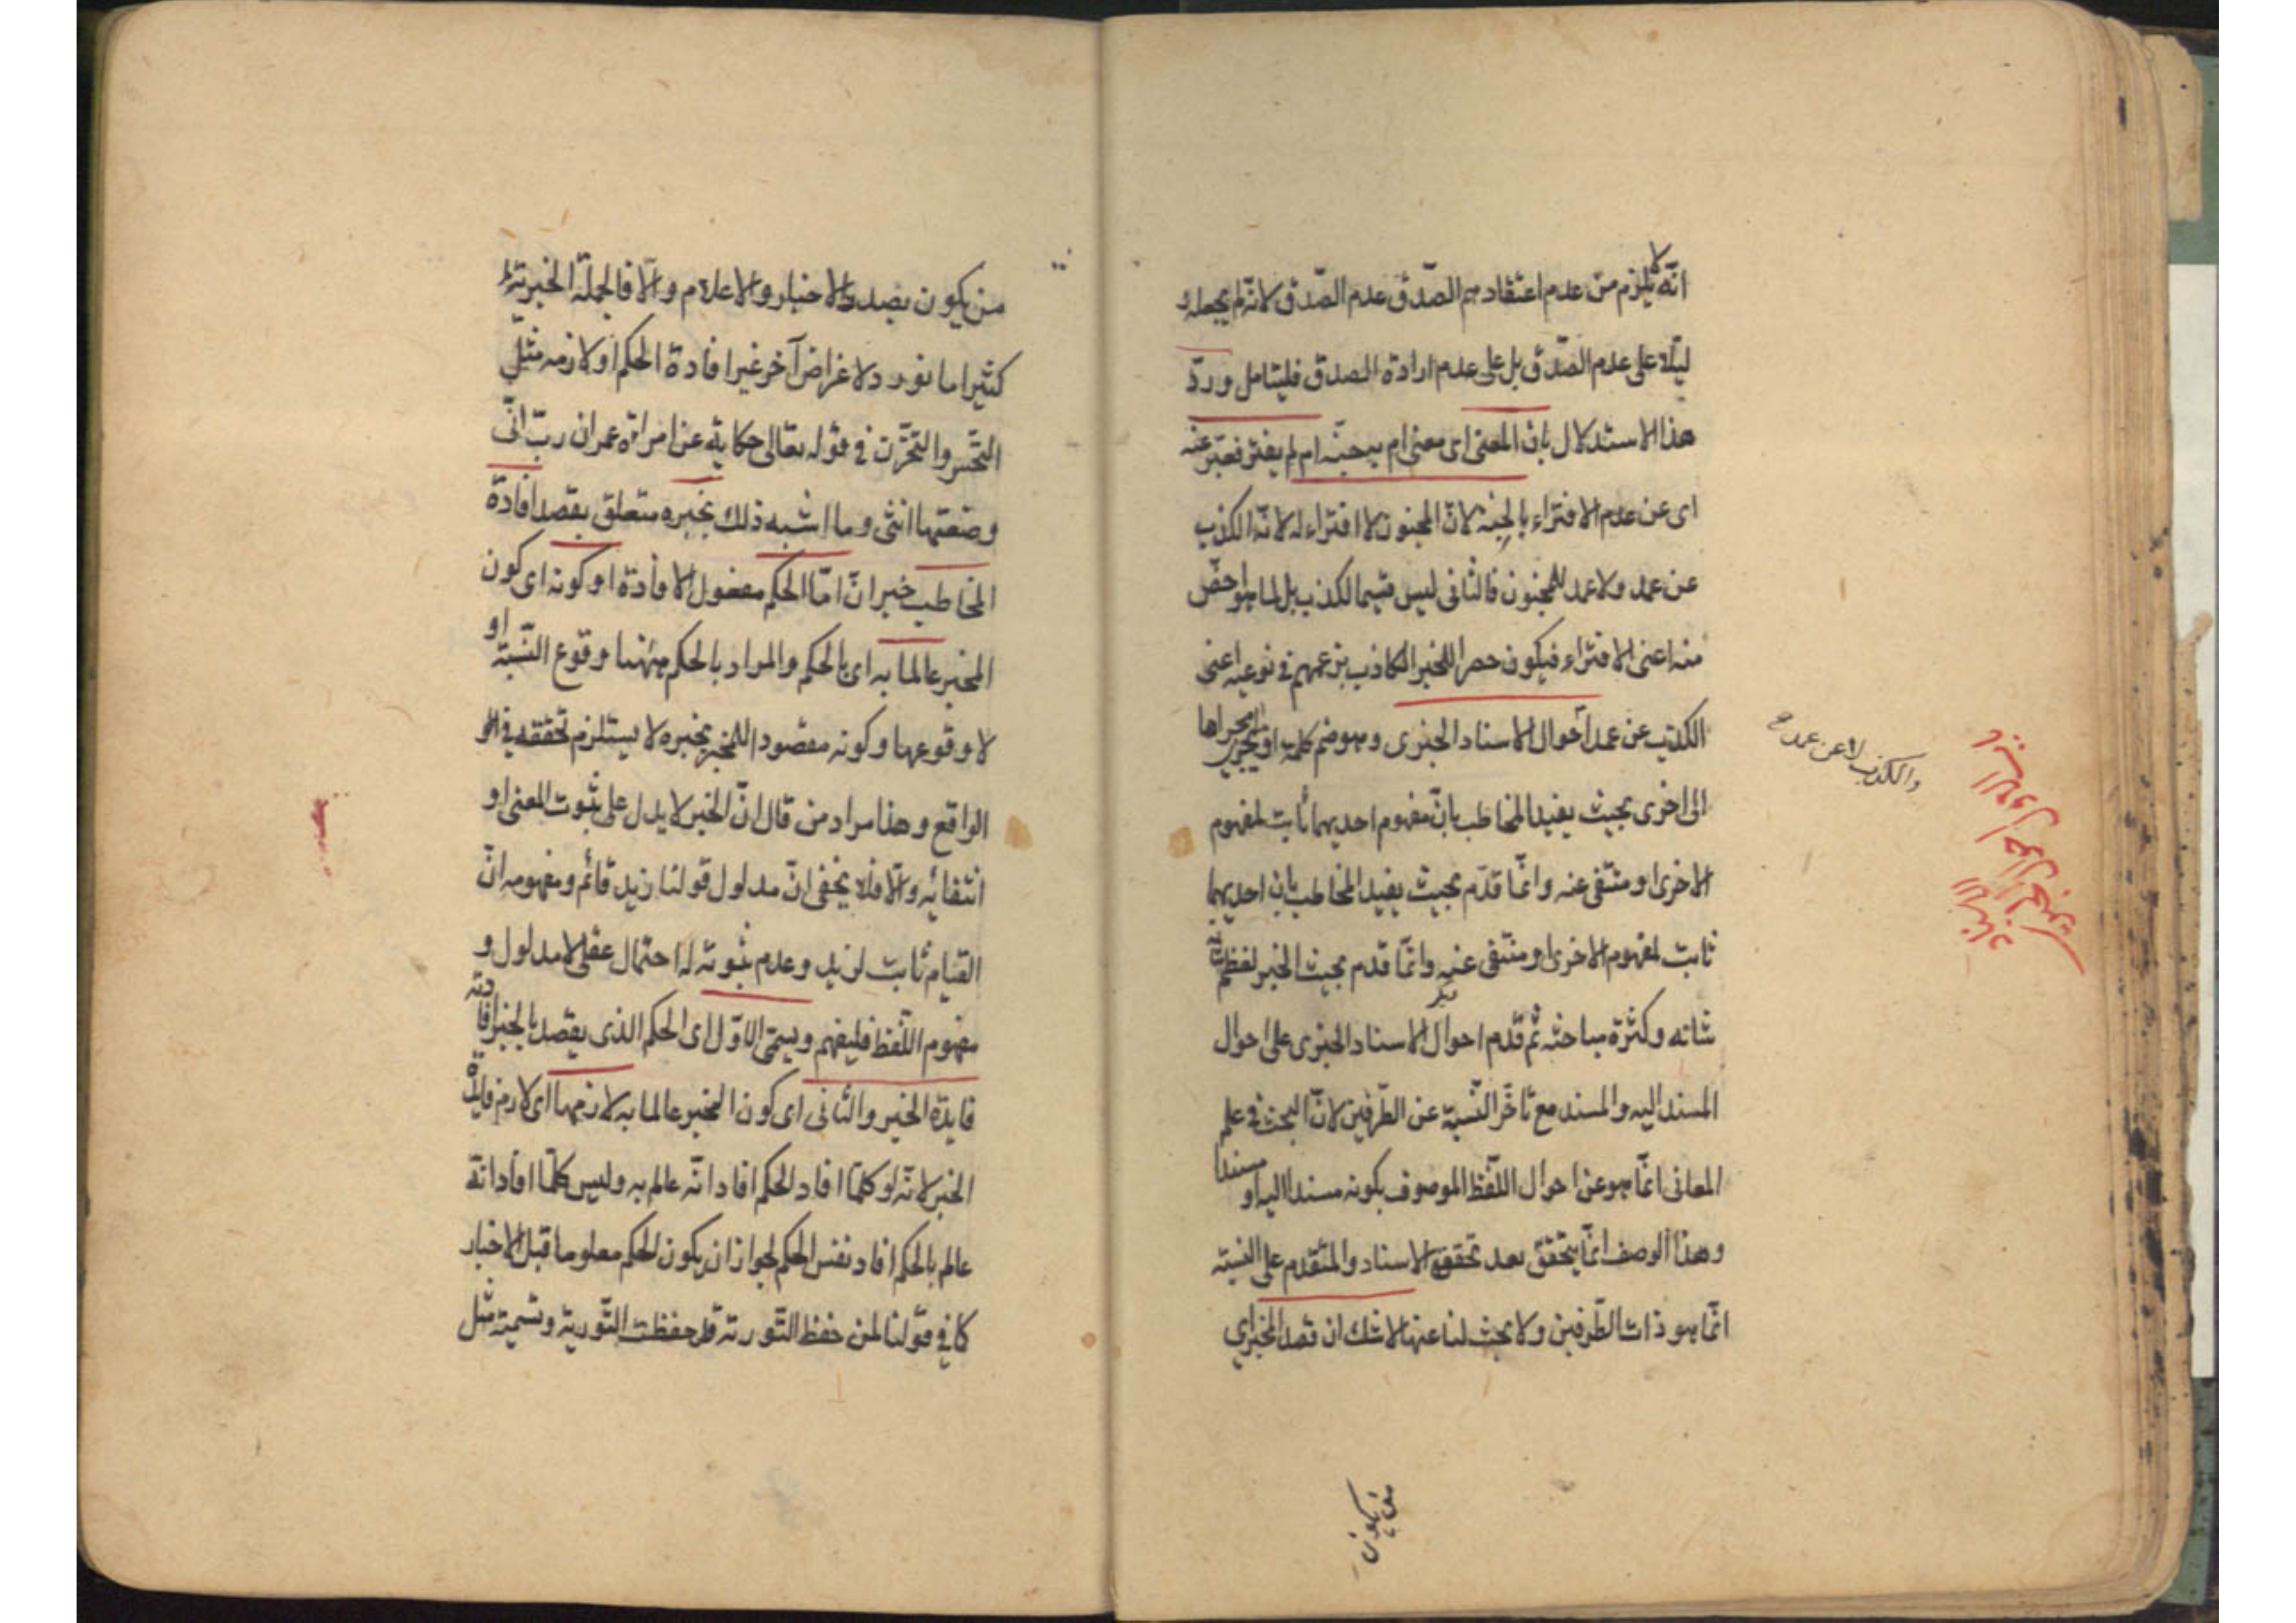 انّه لا يلزم من عدم اعتقادهم الصّدق عدم الصّدق لانّه لم يجعله د
ليلا على عدم الصّدق بل على عدم ارادة الصدق فليتامل وردّ
هذا الاستدلال بان المعنى اى معنى ام به جنّه ام لم يفتر فعبّر عنه
اى عن عدم الافتراء بالجنة لانّ المجنون لا افتراء له لانّه الكذب
عن عمد ولا عمد للمجنون فالثانى ليس قسيما لكذب بل لما هو اخصّ
منه اعنى الافتراء فيكون حصرا للخبر الكاذب بزعمهم فى نوعيه اعنى
الكذب عن عمد احوال الاسناد الخبرى وهو ضم كلمة او ما يجرى مجراها
والكذب لا عن عمد
الى اخرى بحيث يفيد المخاطب بانّ مفهوم احديهما ثابت لمفهوم
الاخرى او منتفى عنه وانّما قدّم بحيث يفيد المخاطب بان احديهما
ثابت لمفهوم الاخرى او منتفى عنه وانّما قدم بحيث الخبر لعظم
شانه وكثرة مباحثه ثم قدم احوال الاسناد الخبرى على احوال
المسند اليه والمسند مع تاخّر النّسبة عن الطّرفين لانّ البحث فى علم
المعانى انّما هو عن احوال اللّفظ الموصوف بكونه مسندا اليه او مسندا
وهذا الوصف انّما يتحقق بعد تحقق الاسناد والمتقدم على النسبة
انّما هو ذات الطّرفين ولا بحث لنا عنها لا شك ان قصد المخبر اي
من يكون
من يكون بصدد الاخبار والاعلام والّا فالجملة الخبرية
كثيرا ما تورد لاغراض آخر غير افادة الحكم او لازمه مثل
التحّسر والتحّزن فى قوله تعالى حكاية عن امراة عمران ربّ انّى
وضعتها انثى وما اشبه ذلك بخبره متعلق بقصد افادة
المخاطب خبر انّ امّا الحكم مفعول الافادة او كونه اى كون
المخبر عالما به اى بالحكم والمراد بالحكم ههنا وقوع النّسبة او
لا وقوعها وكونه مقصودا للمخبر بخبره لا يستلزم تحققه فى
الواقع وهذا مراد من قال انّ الخبر لا يدل على ثبوت المعنى او
انتفائه والّا فلا يخفى انّ مدلول قولنا زيد قائم ومفهومه انّ
القيام ثابت لزيد وعدم ثبوته له احتمال عقلى لا مدلول و
مفهوم اللّفظ فليفهم ويسمّى الاوّل اى الحكم الذى يقصد بالخبر افادته
فايدة الخبر والثانى اى كون المخبر عالما به لازمها اى لازم فايدة
الخبر لانّه كلما افاد الحكم افاد انّه عالم به وليس كلّما افاد انّه
عالم بالحكم افاد نفس الحكم لجواز ان يكون الحكم معلوما قبل الاخبار
كما فى قولنا لمن حفظ التّورية قد حفظت التّورية وتسمية مثل